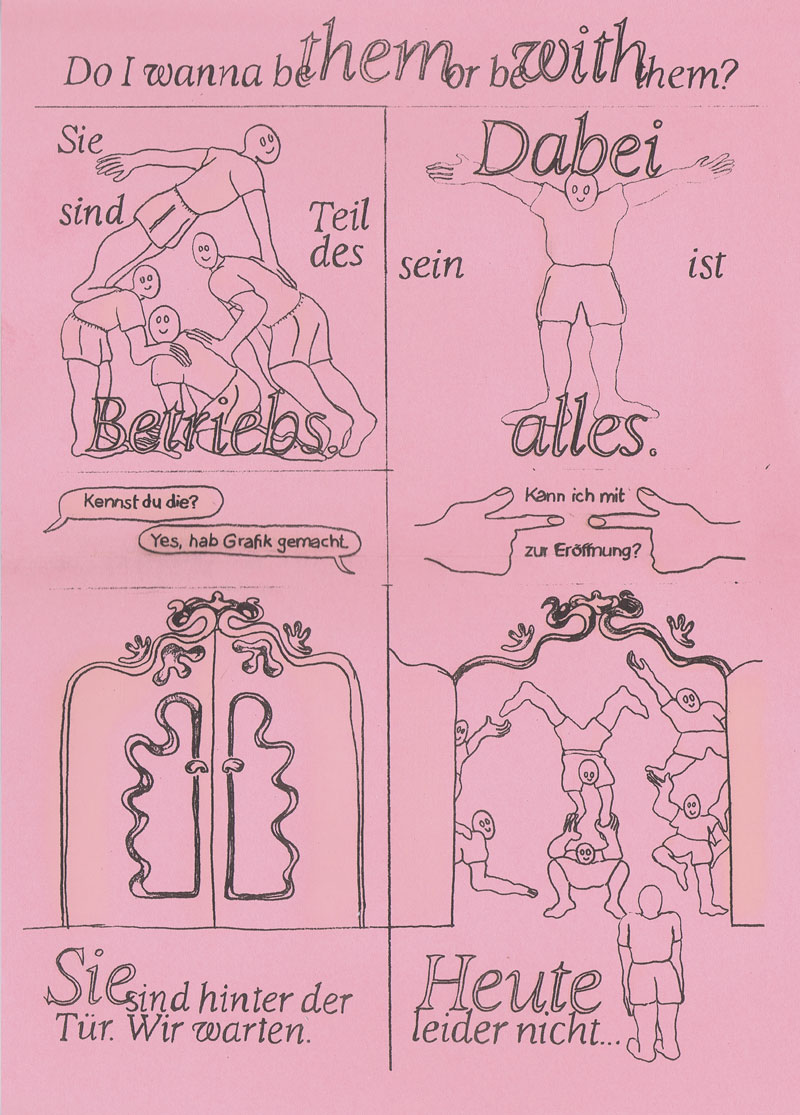 Do I wanna be them or be with them?
Sie
sind
Teil
des
Betriebs.
Dabei
sein ist
alles.
Kennst du die?
Yes, hab Grafik gemacht.
Kann ich mit
zur Eröffnung?
Sie sind hinter der
Tür. Wir warten.
Heute
leider nicht...